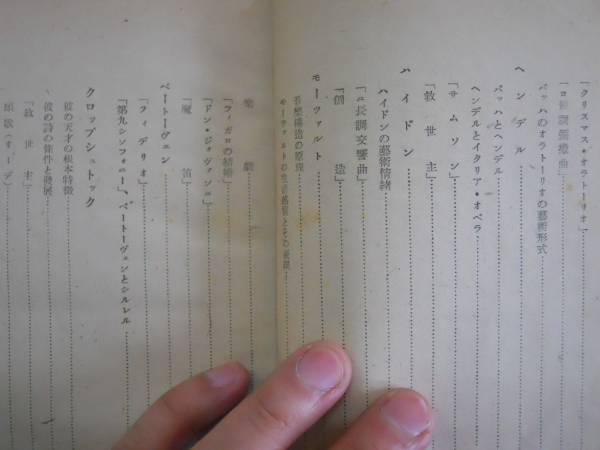 「クリスマス・オラトーリオ」
「ロ短調彌撒曲」
バッハのオラトーリオの藝術形式
ヘンデル
バッハとヘンデル
ヘンデルとイタリア・オペラ
「サムソン」
「救世主」
ハイドン
ハイドンの藝術情緒
「ニ長調交響曲」
「創造」
モーツァルト
音樂構造の原理
モーツァルトの生活感情とその表現
樂劇
「フィガロの結婚」
「ドン・ジョヴァンニ」
「魔笛」
ベートーヴェン
「フィデリオ」
「第九シンフォニー」、ベートーヴェンとシルレル
クロップシュトック
彼の天才の根本特徴
彼の詩の條件と發展
「救世主」
頌歌(オーデ)